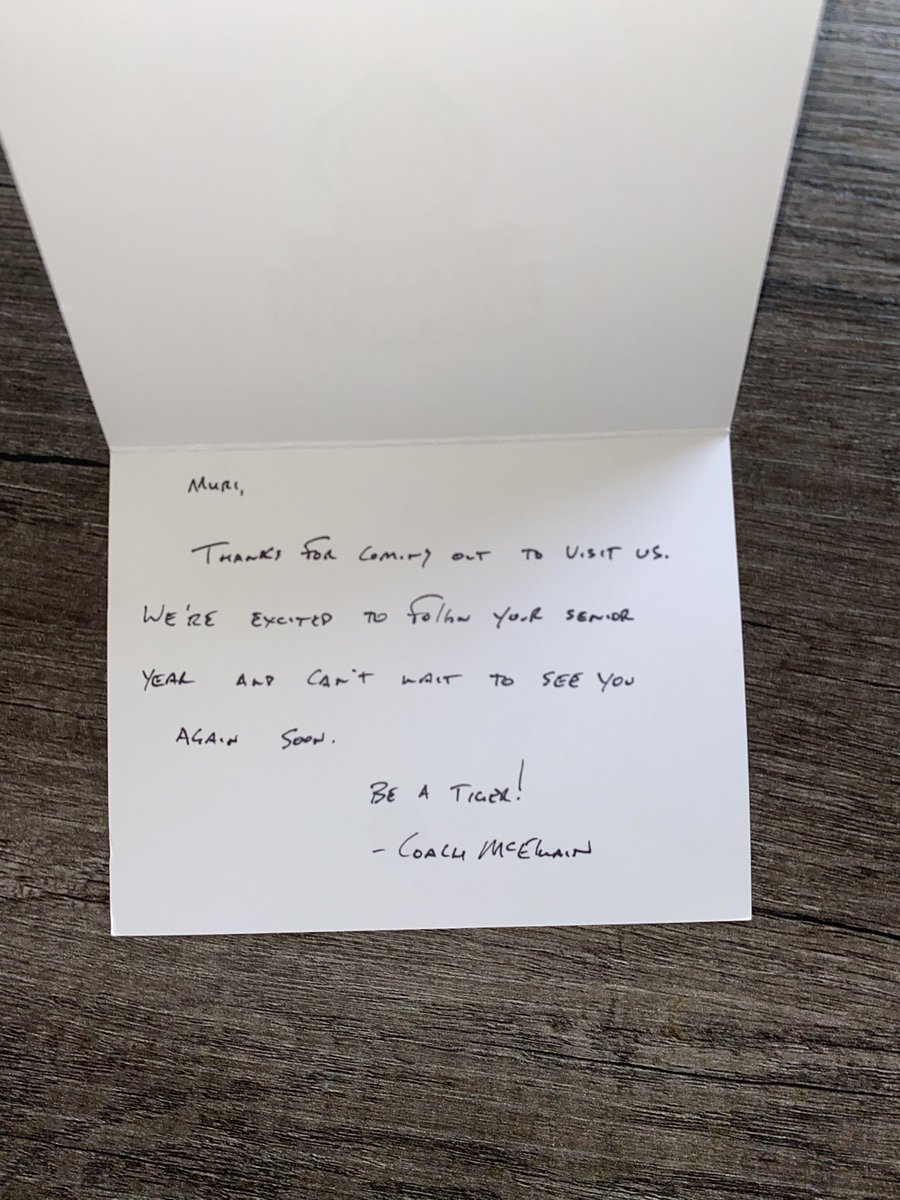 MURI,
THANKS FOR COMING OUT TO VISIT US.
WE'RE EXCITED TO FOLLOW YOUR SENIOR
YEAR AND CAN'T WAIT TO SEE YOU
AGAIN SOON.
BE A TIGER!
- COACH MCELWAIN